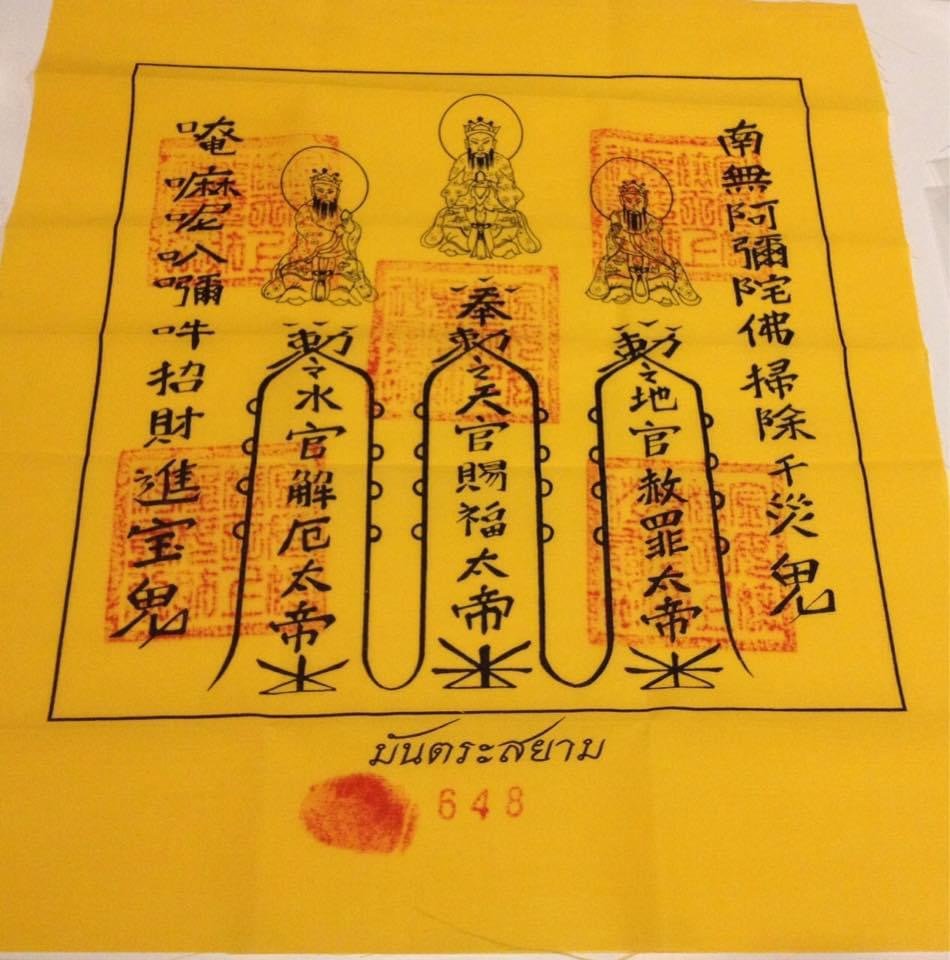 南無阿彌陀佛掃除千災鬼
勅令地官赦罪太帝
奉勅令天官賜福太帝
勅令水官解厄太帝
唵嘛呢叭彌吽招財進宝鬼
มันตระสยาม
648